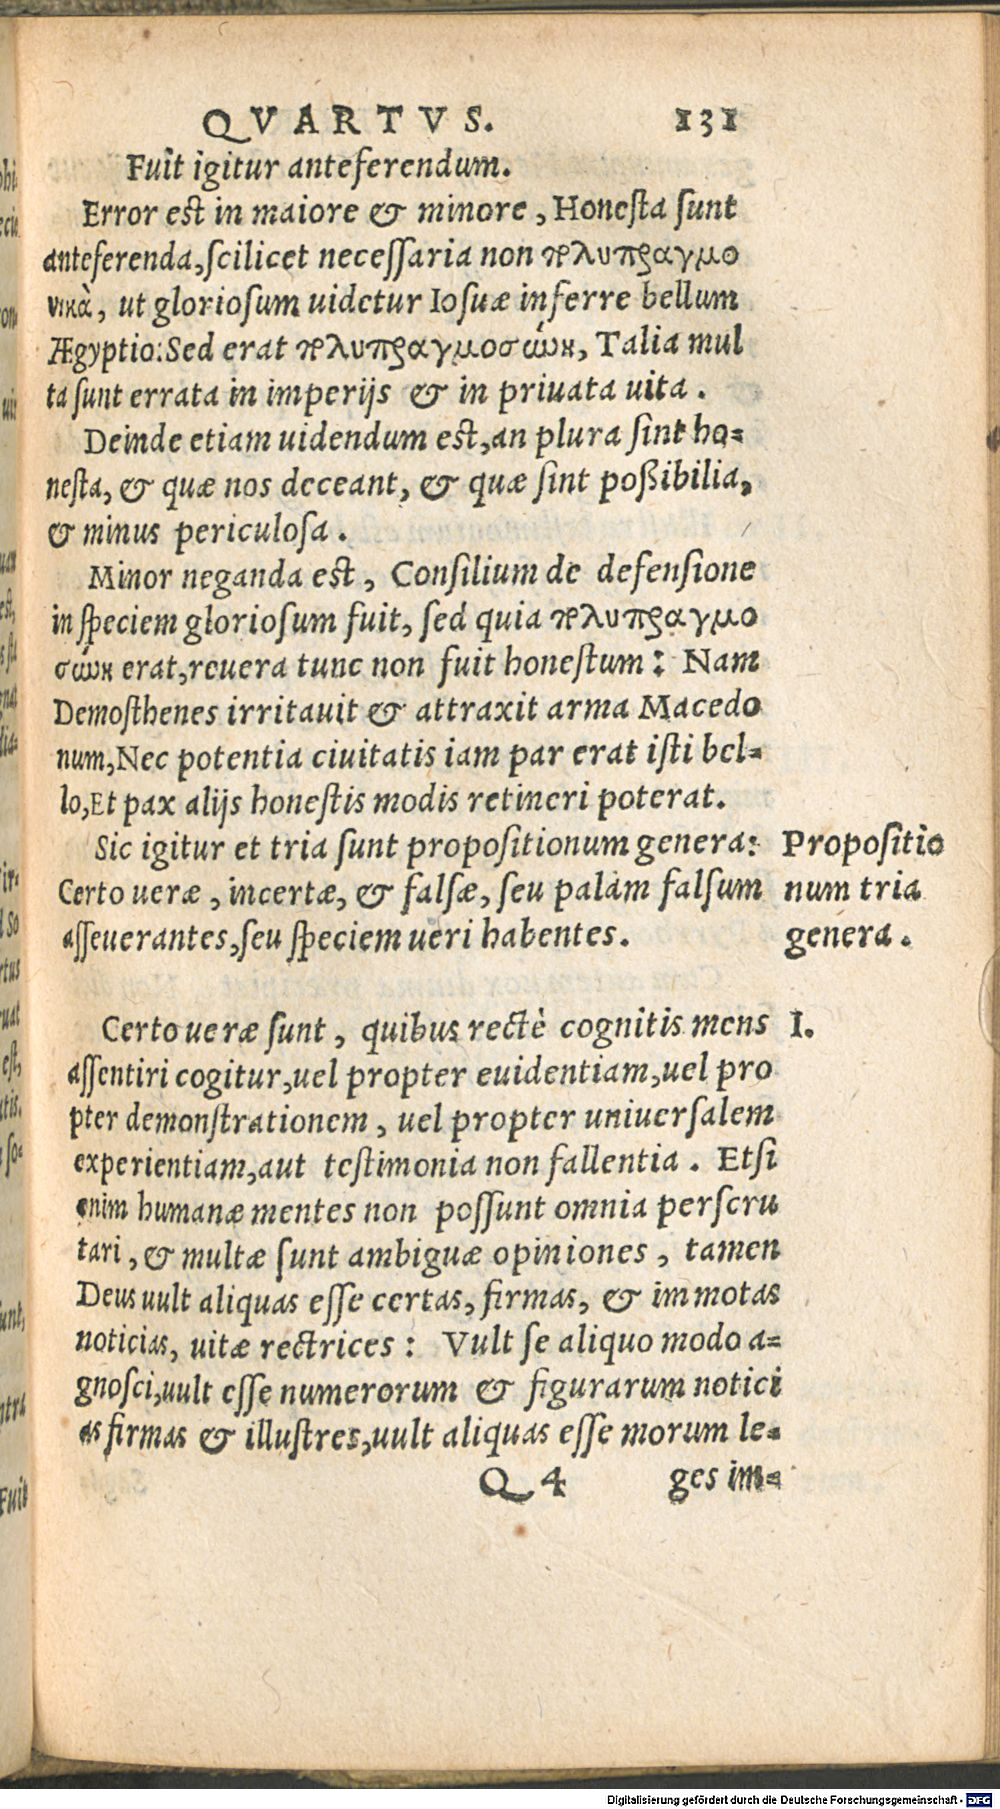 QVARTVS. 131
Fuit igitur anteferendum.
Error est in maiore & minore, Honesta sunt
anteferenda, scilicet necessaria non πολυπραγμο
νικὰ, ut gloriosum uidetur Iosuæ inferre bellum
Ægyptio: Sed erat πολυπραγμοσύνη, Talia mul
ta sunt errata in imperijs & in priuata uita.
Deinde etiam uidendum est, an plura sint ho=
nesta, & quæ nos deceant, & quæ sint poßibilia,
& minus periculosa.
Minor neganda est, Consilium de defensione
in speciem gloriosum fuit, sed quia πολυπραγμο
σύνη erat, reuera tunc non fuit honestum: Nam
Demosthenes irritauit & attraxit arma Macedo
num, Nec potentia ciuitatis iam par erat isti bel=
lo, Et pax alijs honestis modis retineri poterat.
Sic igitur et tria sunt propositionum genera:
Certo ueræ, incertæ, & falsæ, seu palàm falsum
asseuerantes, seu speciem ueri habentes.
Propositio
num tria
genera.
Certo ueræ sunt, quibus rectè cognitis mens
I.
assentiri cogitur, uel propter euidentiam, uel pro
pter demonstrationem, uel propter uniuersalem
experientiam, aut testimonia non fallentia. Etsi
enim humanæ mentes non possunt omnia perscru
tari, & multæ sunt ambiguæ opiniones, tamen
Deus uult aliquas esse certas, firmas, & immotas
noticias, uitæ rectrices: Vult se aliquo modo a=
gnosci, uult esse numerorum & figurarum notici
as firmas & illustres, uult aliquas esse morum le=
Q 4 ges im=
Digitalisierung gefördert durch die Deutsche Forschungsgemeinschaft - DFG